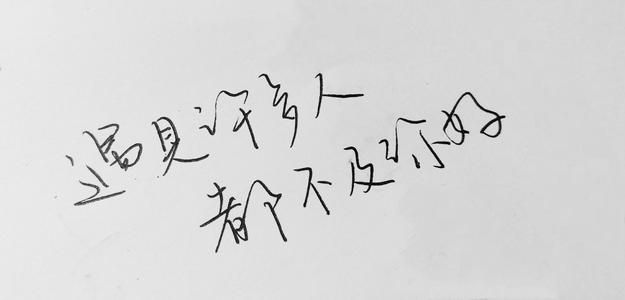 遇見许多人
都不及你好